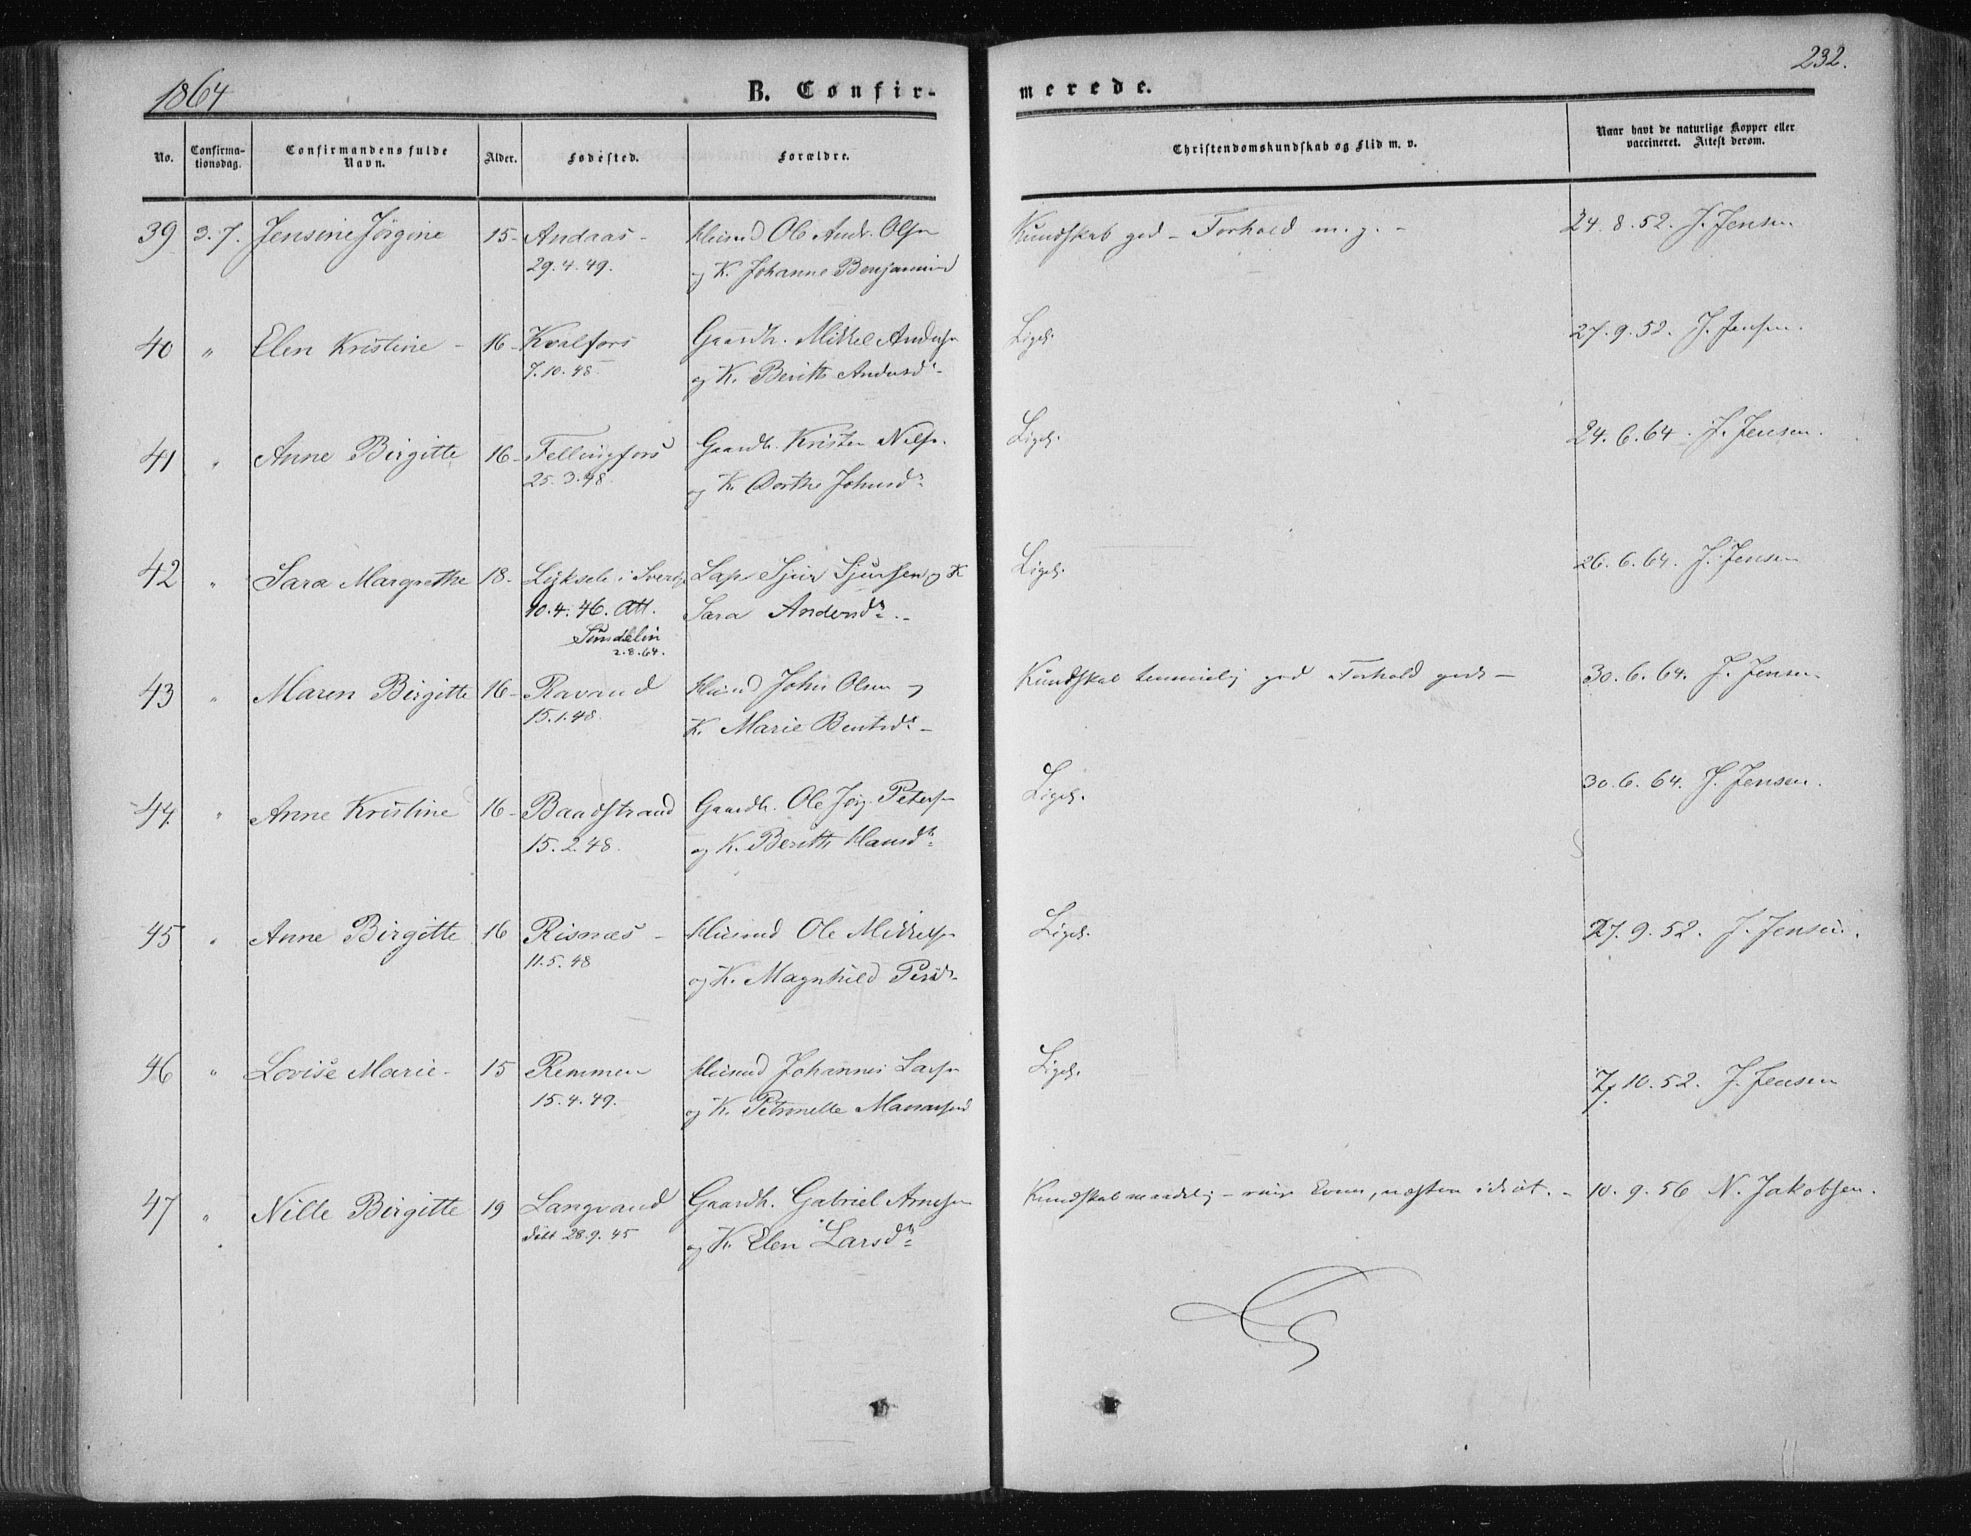 1864 B. Confirmerede. 232.
No. Confirmationsdag. Confirmandens fulde Navn. Alder. Fødested. Forældre. Christendomskundskab og Flid m. v. Naar havt de naturlige Kopper eller vaccineret. Attest derom.
39 3.7. Jensine Jørgine 15- Andaas- Huusmd Ole Andr. Olsen Kundskab god - Forhold m. g. - 24.8.52. J. Jensen
29.4.49. og K. Johanne Benjaminsd
40 " Elen Kristine - 16- Kvalfors Gaardb. Mikkel Anders Ligel. 27.9.52. J. Jensen.
7.10.48 og K. Beritte Andersdr
41 " Anne Birgitte 16- Fellingfors Gaardb. Kristen Nilss. Ligel. 24.6.64. J. Jensen.
25.3.48. og K. Dorthe Johnsdr
42 " Sara Margrethe 18- Lyksele i Sverig Lap Sjur Sjursen og K Ligel. 26.6.64. J. Jensen
10.4.46. Att. Sara Andersdr.-
Sundelin
2.8.64.
43 " Maren Birgitte 16- Ravand Huusmd John Olsen og Kundskab temmelig god Forhold godt - 30.6.64. J. Jensen
15.1.48 K. Marie Bentsdr-
44 " Anne Kristine 16- Baadstrand Gaardb. Ole Jørg. Peters Ligel. 30.6.64. J. Jensen.
15.2.48. og K. Beritte Hansdr
45 " Anne Birgitte 16 Risnæs - Huusmd Ole Mikkels Ligel. 27.9.52. J. Jensen.
11.5.48 og K. Magnhild Persdr
46 " Lovise Marie- 15 Remmen Huusmd Johannes Lars Ligel. 7.10.52. J. Jensen
15.4.49. og K. Petronelle
47 " Nille Birgitte 19 Langvand Gaardb. Gabriel Arnes Kundskab maadelig - ringe Evner, næsten idiot. - 10.9.56 N. Jakobsen.
døbt 28.9.45 og K. Elen Larsdr